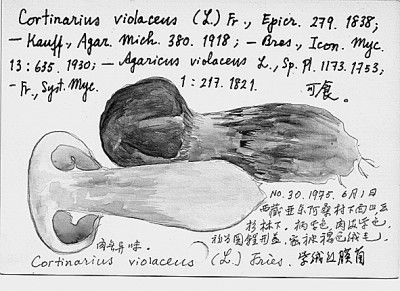 Cortinarius violaceus (L.) Fr., Epicr. 279. 1838;
— Kauff., Agar. Mich. 380. 1918; — Bres., Icon. Myc.
13:635. 1930; — Agaricus violaceus L., Sp. Pl. 1173. 1753;
— Fr., Syst. Myc. 1:217. 1821. 可食。
No. 30. 1975. 6月1日
西藏亚东阿桑村下南山云
杉林下。柄紫色,肉淡紫色,
初为圆锥形盖,密被褐色绒毛。
肉无异味。
Cortinarius violaceus (L.) Fries. 紫绒丝膜菌